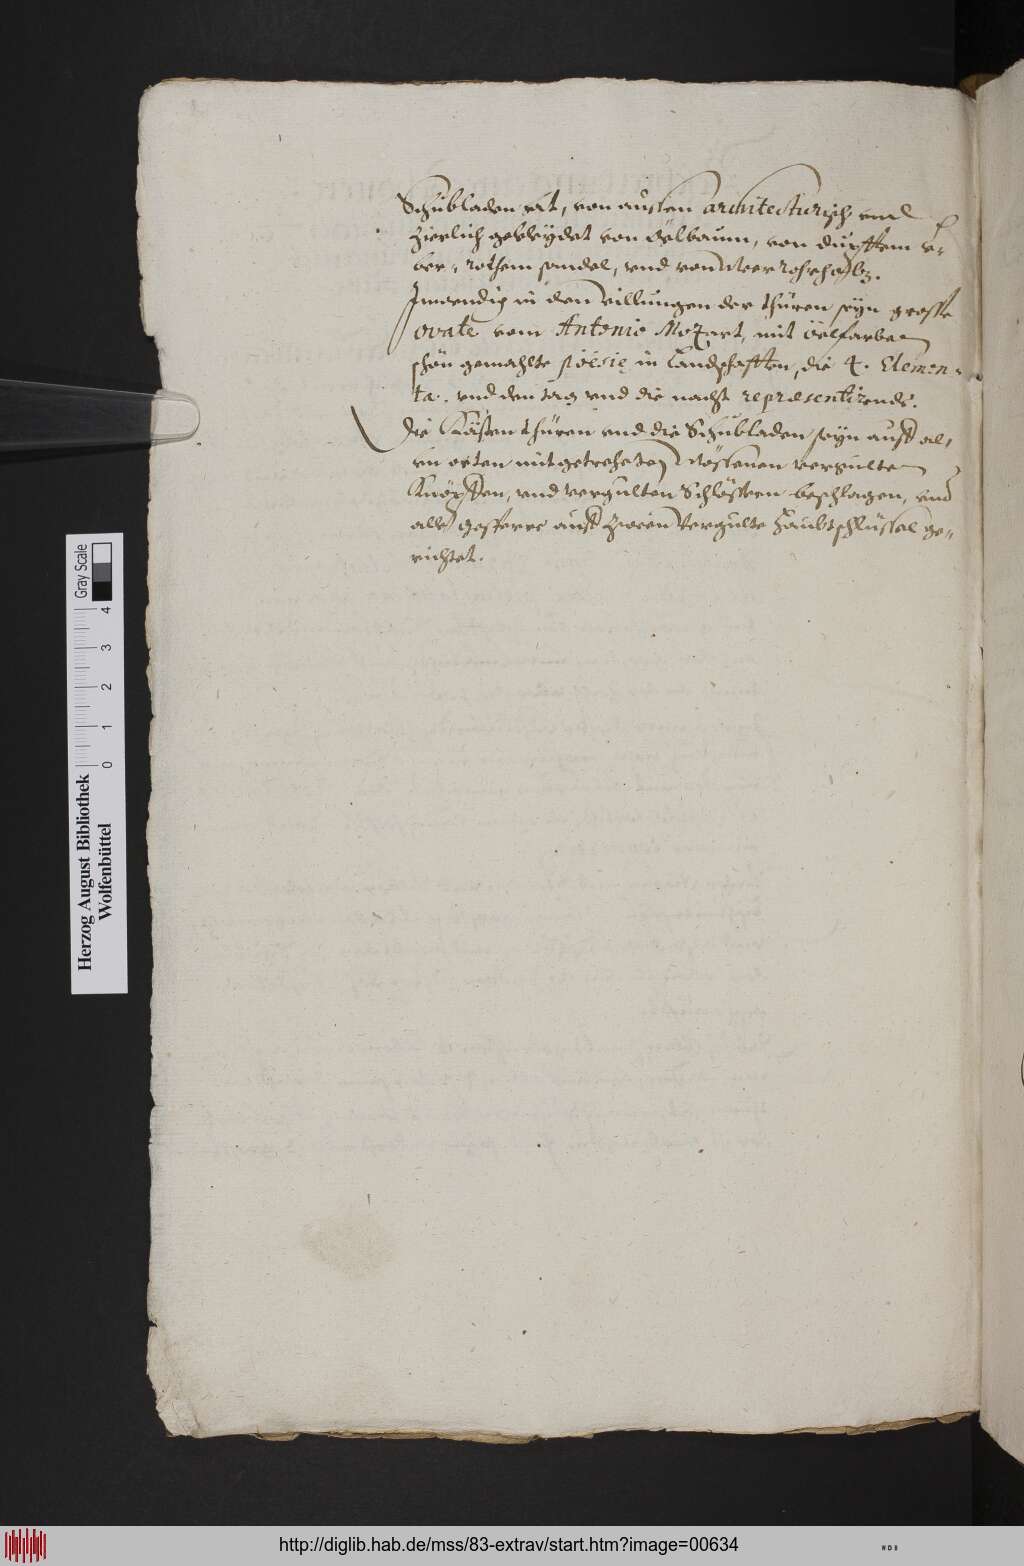 Schubladen  , von aussen architecturisch vnd
zierlich bekleydet von Oelbaum, von
ber, rothem sandel, vnd von Meer Rohrholz.
Inwendig in den Villungen der thüren seyn grosse
ovate vom Antonio Mozart, mit oelfarben
schön gemahlte poësie in Landschafften, die 4. Elemen-
ta. vnd den tag vnd die nacht repræsentirende.
Die Kästen thüren vnd die Schubladen seyn auff al-
len orten mit getreheten Mössenen vergulten
Knöpffen, vnd vergulten Schlössern beschlagen, vnd
alle gesperr auff zween vergulte Haubtschlüssel ge-
richtet.
Herzog August Bibliothek
Wolfenbüttel
0 1 2 3 4
Gray Scale
http://diglib.hab.de/mss/83-extrav/start.htm?image=00634